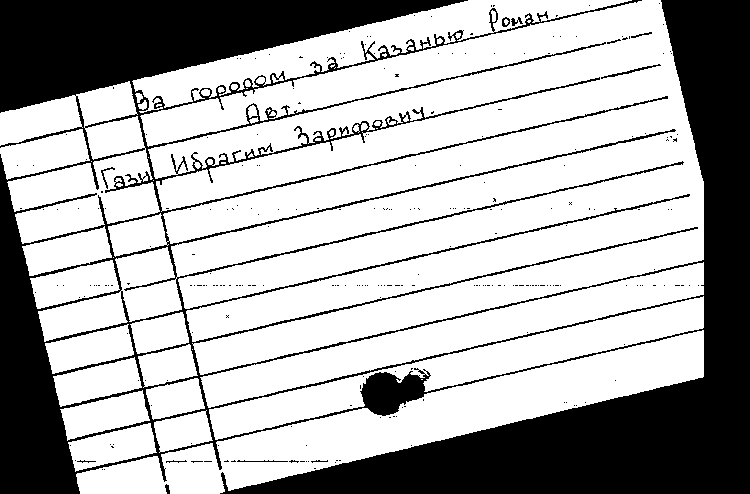 За городом, за Казанью. Роман.
Авт.:
Гази, Ибрагим Зарифович.